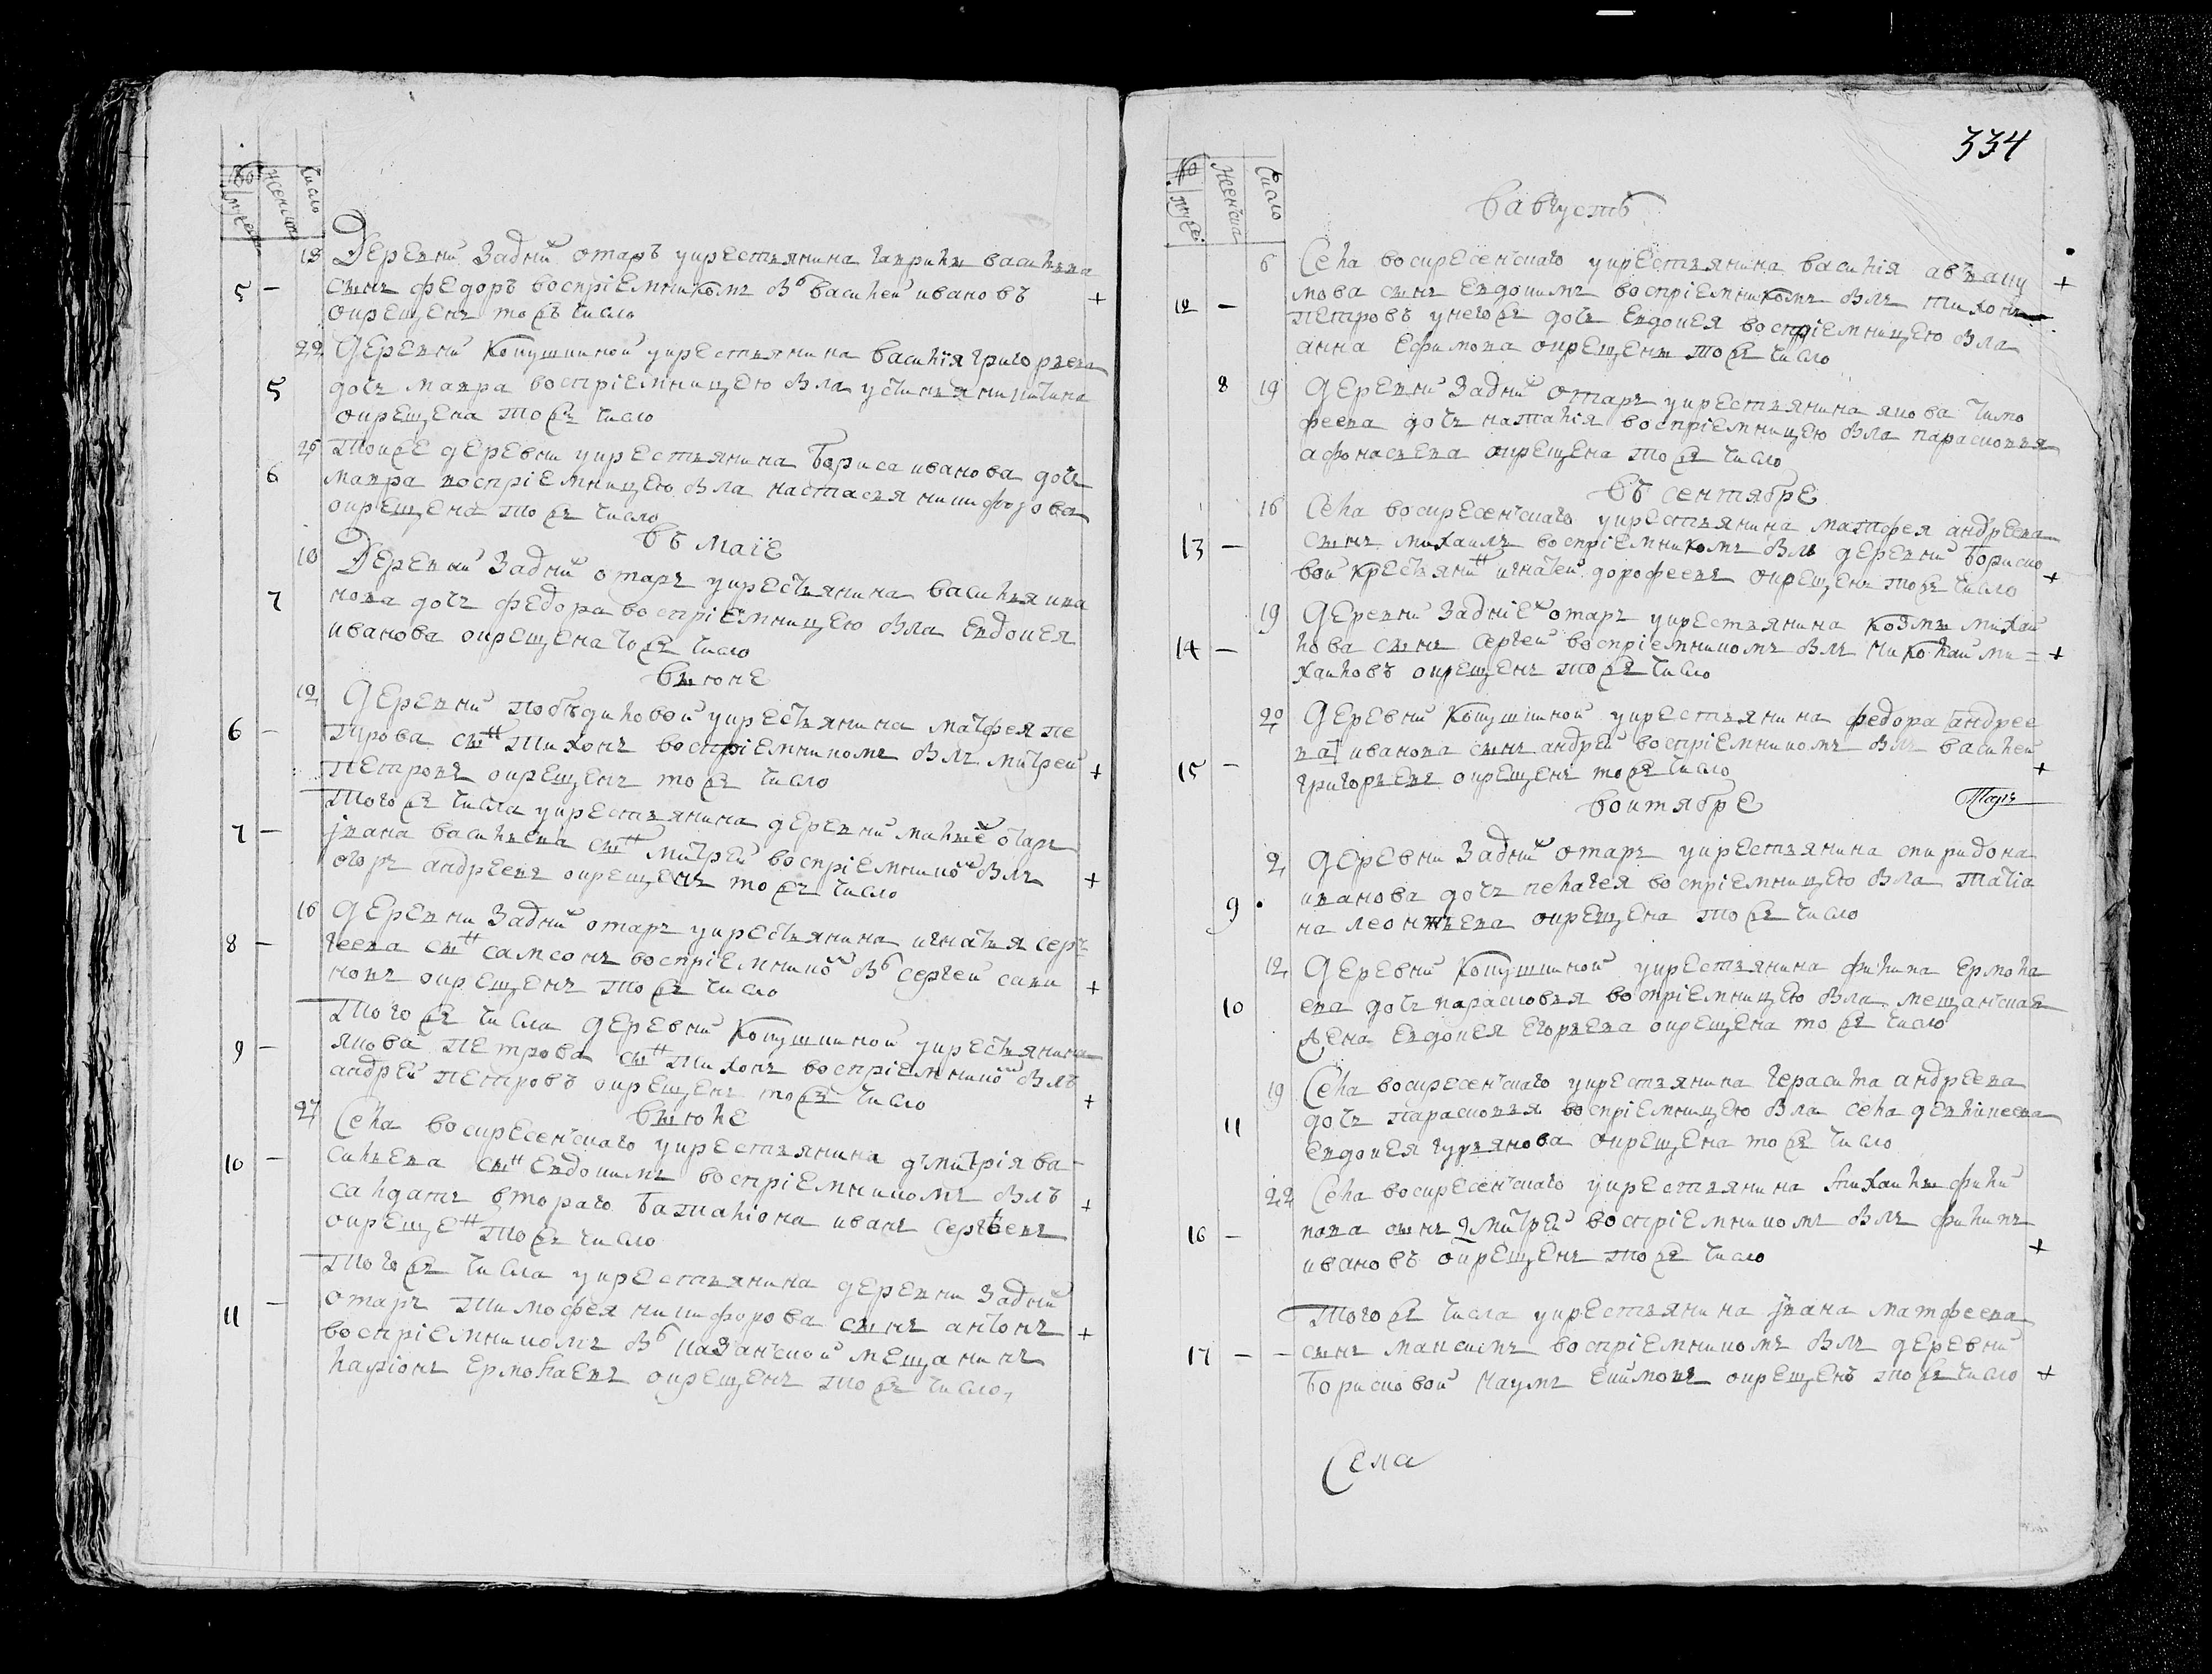 мужеск женска число
18 Деревни Задних отаръ у крестьянина гаврилы васильева
5 — сынъ федоръ воспріемникомъ былъ василей ивановъ +
окрещенъ тожъ число
22 Деревни Кокушкиной у крестьянина василія григорьева
5 дочь мавра воспріемницею была устинья никитина
окрещена тожъ число
25 Тоиже деревни у крестьянина бориса иванова дочь
6 мавра воспріемницею была настасья никифорова
окрещена тожъ число
въ маіе
10 Деревни Задних отаръ у крестьянина василья ива
7 нова дочь федора воспріемницею была евдокея
иванова окрещена тожъ число
въ июне
12 Деревни победиловой у крестьянина матфея пе
6 — трова сынъ тихонъ воспріемникомъ былъ митрей
петровъ окрещенъ тожъ число +
Того жъ числа у крестьянина деревни малые отаръ
7 — ивана васильева сынъ митрей воспріемникомъ былъ
егоръ андреевъ окрещенъ тожъ число +
16 Деревни Задних отаръ у крестьянина игнатья серъ
8 — геева сынъ самсонъ воспріемникомъ былъ сергей сави
новъ окрещенъ тожъ число +
Того жъ числа деревни Кокушкиной у крестьянина
9 — якова петрова сынъ тихонъ воспріемникомъ былъ
андрей петровъ окрещенъ тожъ число +
въ июле
27 Села воскресенскаго у крестьянина дмитрія ва-
10 — сильева сынъ евдокимъ воспріемникомъ былъ
салдатъ втораго баталіона иванъ сергѣевъ +
окрещенъ тожъ число
Того жъ числа у крестьянина деревни Задних
11 — отаръ тимофея никифорова сынъ антонъ
воспріемникомъ былъ казанской мещанинъ +
ларіонъ ермолаевъ окрещенъ тожъ число
334
мужеск женска число
въ августѣ
6 Села воскресенскаго у крестьянина василія авваку +
12 — мова сынъ евдокимъ воспріемникомъ былъ тихонъ
петровъ у негожъ дочь евдокея воспріемницею была
анна ефимова окрещены тожъ число
8 19 Деревни Задних отаръ у крестьянина якова тимо
феева дочь наталія воспріемницею была парасковья
афонасьева окрещена тожъ число
въ сентябре
16 Села воскресенскаго у крестьянина матфея андреева
13 — сынъ михаилъ воспріемникомъ былъ деревни Бориско
вой крестьянинъ игнатей дорофеевъ окрещенъ тожъ число +
19 Деревни Задние отаръ у крестьянина козмы михаи
14 — лова сынъ сергей воспріемникомъ былъ николай ми= +
хаиловъ окрещенъ тожъ число
20 Деревни Кокушкиной у крестьянина федора андрее
ва иванова сынъ андрей воспріемникомъ былъ василей
15 — григорьевъ окрещенъ тожъ число +
въ октябре
2 Деревни Задних отаръ у крестьянина спиридона
иванова дочь пелагея воспріемницею была татіа
9 на леонтьева окрещена тожъ число
12 Деревни Кокушкиной у крестьянина филипа ермола
10 ева дочь парасковья воспріемницею была мещанская
жена евдокея егорьева окрещена тожъ число
19 Села воскресенскаго у крестьянина герасима андреева
11 дочь парасковья воспріемницею была села девликеева
евдокея гурьянова окрещена тожъ число
22 Села воскресенскаго у крестьянина михаилы фили
16 — пова сынъ дмитрей воспріемникомъ былъ филипъ
ивановъ окрещенъ тожъ число +
Того жъ числа у крестьянина ивана матфеева
17 — — сынъ максимъ воспріемникомъ былъ деревни
Борисковой наумъ екимовъ окрещенъ тожъ число +
Села